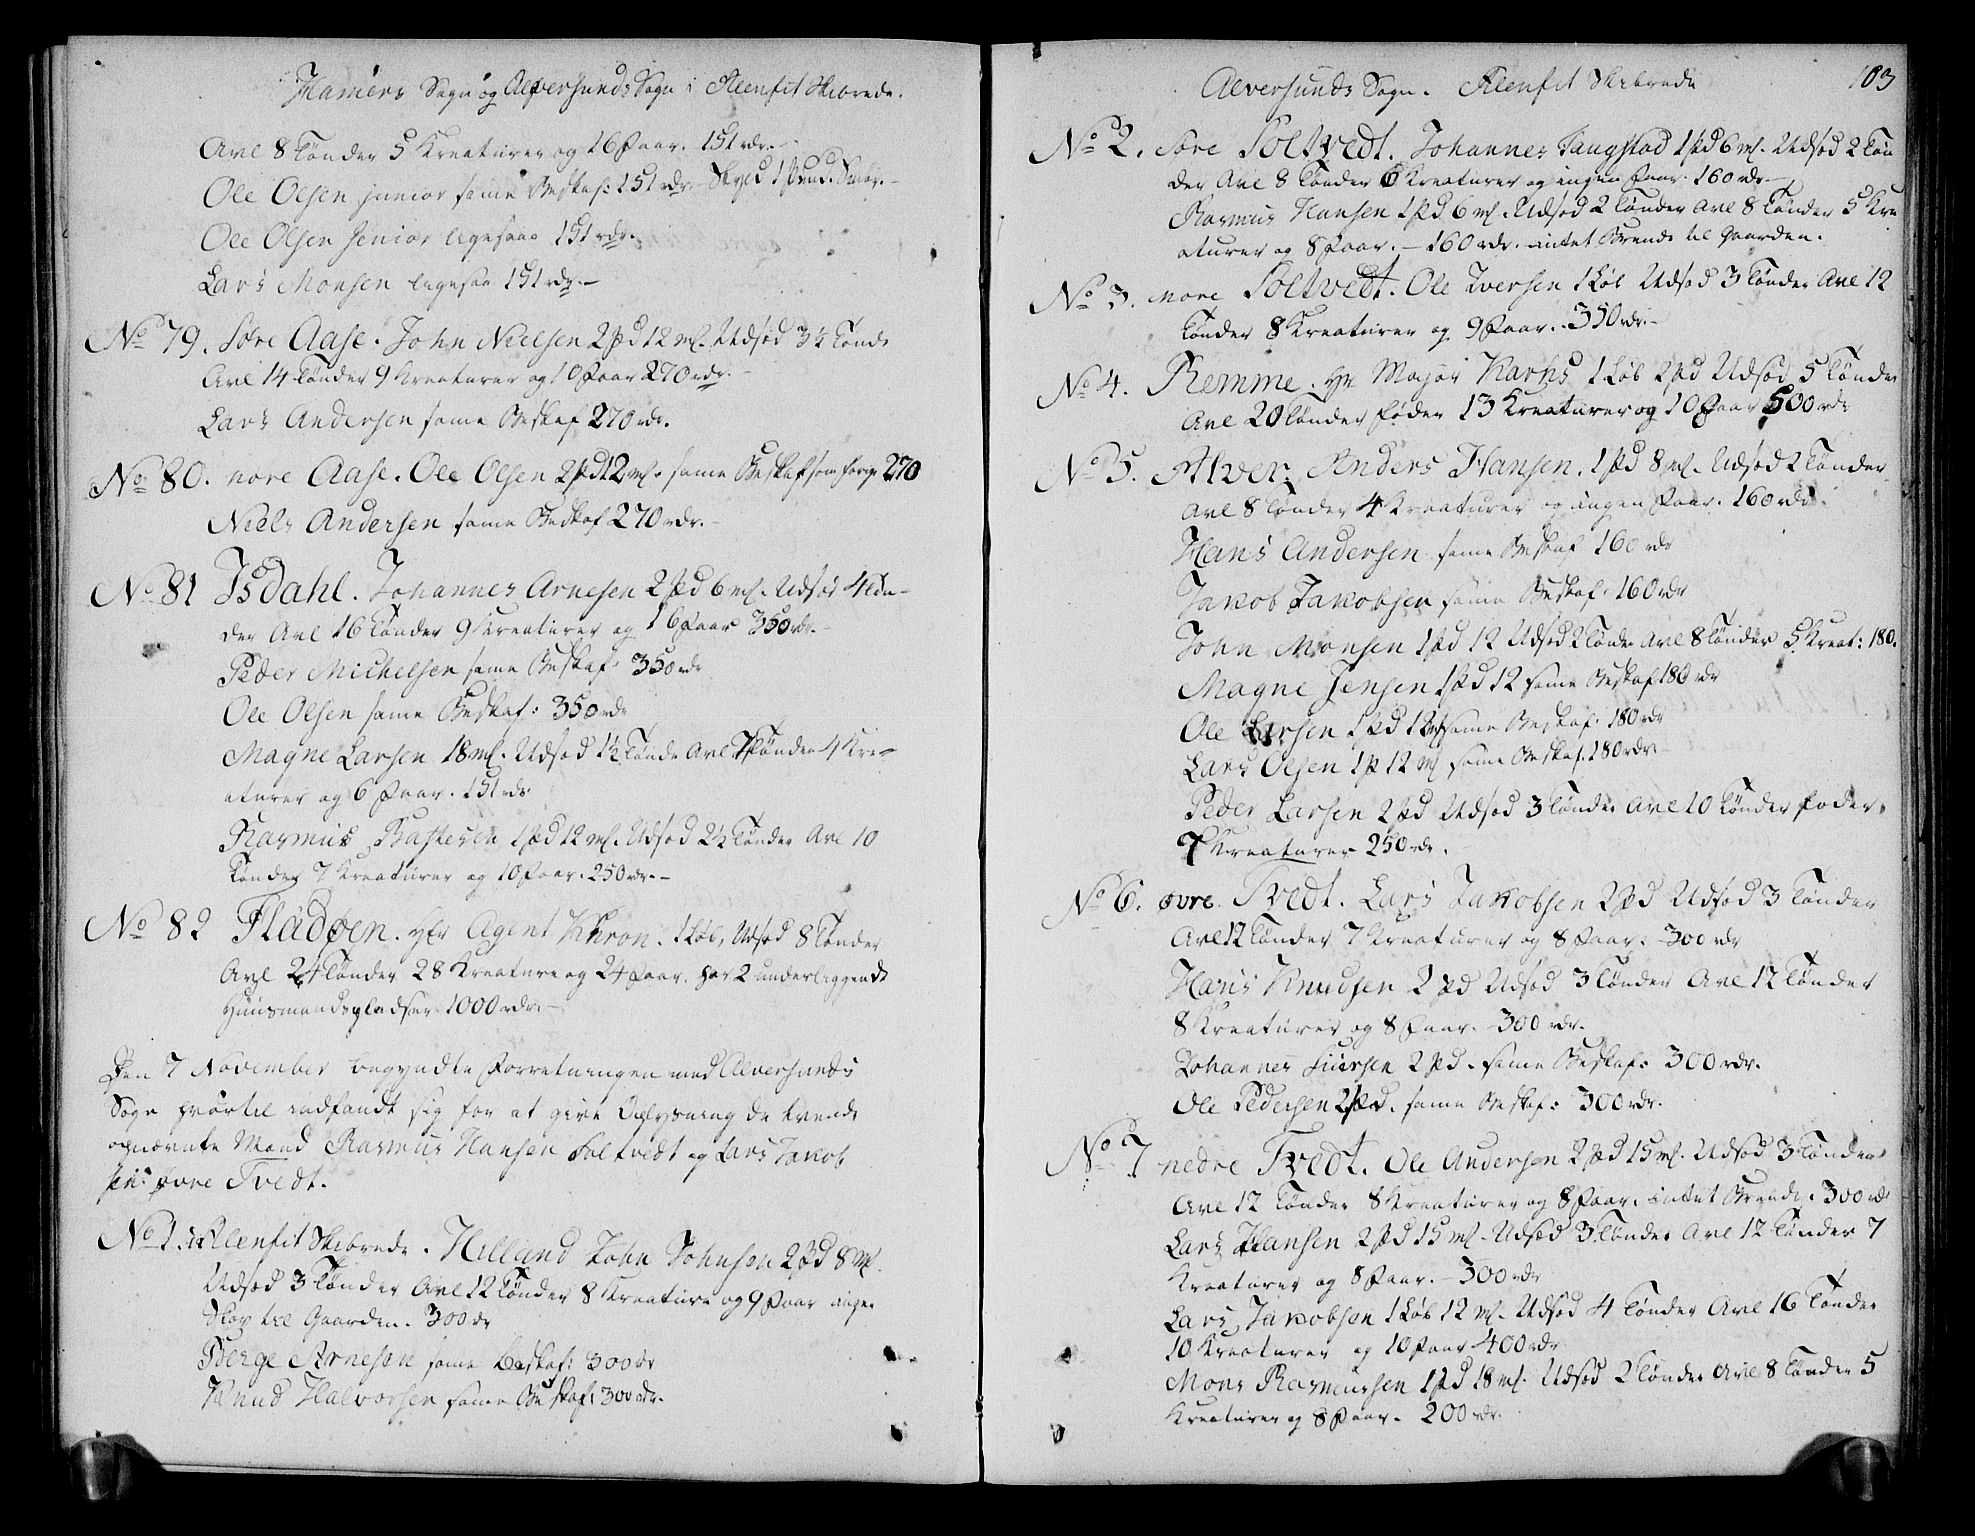 Hamers Sogn og Alversunds Sogn i Alenfit Skibrede.
Avl 8 Tønder 5 Kreaturer og 16 Faar. 151 rdr.
Ole Olsen junior same Beskaf: 151 rdr. Skyld 1 pund Smør.
Ole Olsen senior ligesaa 151 rdr.
Lars Monsen ligesaa 151 rdr.
No 79. Søre Aase. John Nielsen 2 pd 12 mk. Udsød 3½ Tønde
Avl 14 Tønder 9 Kreaturer og 10 Faar 270 rdr.
Lars Andersen same Beskaf 270 rdr.
No 80. nore Aase. Ole Olsen 2 pd 12 mk. same Beskaf som forige 270
Niels Andersen same Beskaf 270 rdr.
No 81 Isdahl. Johannes Arnesen 2 pd 6 mk. Udsød 4 Tøn-
der Avl 16 Tønder 9 Kreaturer og 16 Faar 350 rdr.
Peder Michelsen same Beskaf: 350 rdr
Ole Olsen same Beskaf: 350 rdr
Magne Larsen 18 mk. Udsød 1½ Tønde Avl 7 Tønder 4 Kre-
aturer og 6 Faar. 151 rdr
Rasmus Bastesen 1 pd 12 mk. Udsød 2½ Tønder Avl 10
Tønder 7 Kreaturer og 10 Faar. 250 rdr.
No 82 Fladøen. Hr Agent Khron. 1 Løb, Udsød 8 Tønder
Avl 24 Tønder 28 Kreature og 24 Faar. har 2 underliggende
Huusmandspladser 1000 rdr.
Den 7 November begyndte Forretningen med Alversunds
Sogn hvortil indfandt sig for at give Oplysning de tvende
opnævnte Mænd Rasmus Hansen Soltvedt og Lars Jakob
sen øvre Tvedt.
No 1. i Alenfit Skibrede. Hilland John Johnsen 2 pd 8 mk.
Udsød 3 Tønder Avl 12 Tønder 8 Kreature og 9 Faar ingen
Skov til Gaarden. 300 rdr
Berge Arnesen same Beskaf: 300 rdr
Knud Halvorsen same Beskaf: 300 rdr.
Alversunds Sogn. Alenfit Skibrede
103
No 2. Søre Soltvedt. Johannes Taugstad 1 pd 6 mk. Udsød 2 Tøn
der Avl 8 Tønder 6 Kreaturer og ingen Faar. 160 rdr.
Rasmus Hansen 1 pd 6 mk. Udsød 2 Tønder Avl 8 Tønder 5 Kre
aturer og 8 Faar. - 160 rdr. intet Brende til Gaarden.
No 3. Nore Soltvedt. Ole Iversen 1 Løb Udsød 3 Tønder Avl 12
Tønder 8 Kreaturer og 9 Faar. 350 rdr.
No 4. Remme. Hr Major Karhs 1 Løb 2 pd Udsød 5 Tønder
Avl 20 Tønder føder 13 Kreaturer og 10 Faar 500 rdr
No 5. Alver. Anders Hansen. 1 pd 8 mk. Udsød 2 Tønder
Avl 8 Tønder 4 Kreaturer og ingen Faar. 160 rdr.
Hans Andersen same Beskaf 160 rdr
Jakob Jakobsen same Beskaf. 160 rdr
John Monsen 1 pd 12 Udsød 2 Tønder Avl 8 Tønder 5 Kreat: 180.
Magne Jensen 1 pd 12 same Beskaf 180 rdr
Ole Larsen 1 pd 12 mk same Beskaf. 180 rdr
Lars Olsen 1 p 12 mk same Beskaf. 180 rdr.
Peder Larsen 2 pd Udsød 3 Tønder Avl 10 Tønder føder
7 Kreaturer 250 rdr.
No 6. øvre Tvedt. Lars Jakobsen 2 pd Udsød 3 Tønder
Avl 12 Tønder 7 Kreaturer og 8 Faar. 300 rdr
Hans Knudsen 2 pd Udsød 3 Tønder Avl 12 Tønder
8 Kreaturer og 8 Faar. 300 rdr.
Johannes Iversen 2 pd. same Beskaf: 300 rdr.
Ole Pedersen 2 pd. same Beskaf: 300 rdr.
No 7 nedre Tvedt. Ole Andersen 2 pd 15 mk. Udsød 3 Tønder
Avl 12 Tønder 8 Kreaturer og 8 Faar. intet Brende. 300 rdr
Lars Hansen 2 pd 15 mk. Udsæd 3 Tønder Avl 12 Tønder 7
Kreaturer og 8 Faar. - 300 rdr
Lars Jakobsen 1 Løb 12 mk. Udsød 4 Tønder Avl 16 Tønder
10 Kreaturer og 10 Faar 400 rdr
Mons Rasmussen 1 pd 18 mk. Udsød 2 Tønder Avl 8 Tønder 5
Kreaturer og 8 Faar. 200 rdr.